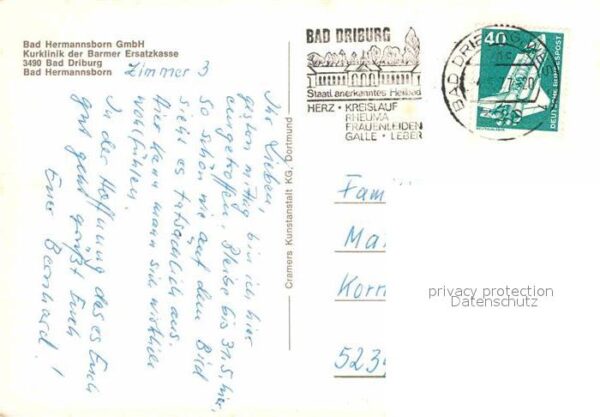 Bad Hermannsborn GmbH
Kurklinik der Barmer Ersatzkasse
3490 Bad Driburg
Bad Hermannsborn
Zimmer 3
Ihr Lieben,
gestern mittag bin ich hier
eingetroffen, bleibe bis 31.5. hier,
so schön wie auf dem Bild
sieht es tatsächlich aus.
Hier kann man sich wirklich
wohlfühlen.
In der Hoffnung das es Euch
gut geht grüßt Euch
Euer Bernhard!
Cramers Kunstanstalt KG, Dortmund
BAD DRIBURG
Staatl. anerkanntes Heilbad
HERZ · KREISLAUF
RHEUMA
FRAUENLEIDEN
GALLE · LEBER
BAD DRIBURG
40
DEUTSCHE BUNDESPOST
Fam
Ma
Korn
523
privacy protection
Datenschutz